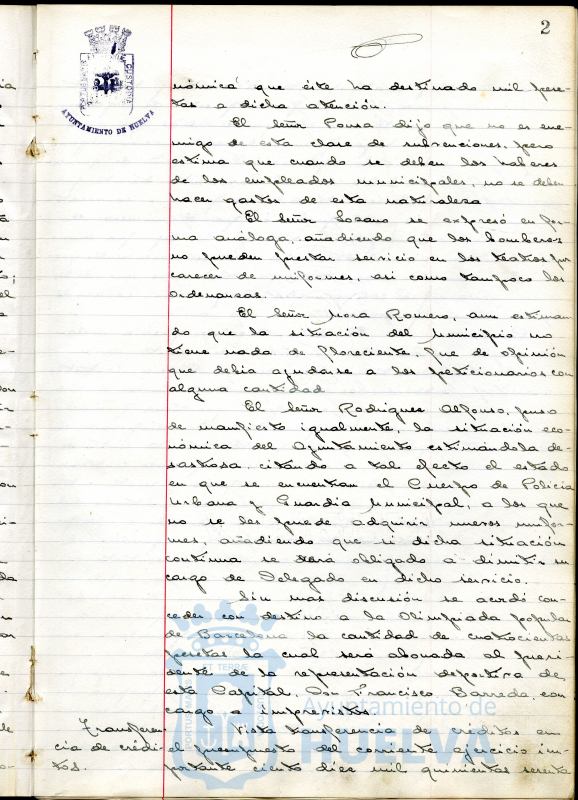 2
PORTUS MARIS
CUSTODIA
AYUNTAMIENTO DE HUELVA
nómica que éste ha destinado mil pese-
tas a dicha atención.
El señor Ponsa dijo que no es ene-
migo de esta clase de subvenciones, pero
estima que cuando se deben los haberes
de los empleados municipales, no se deben
hacer gastos de esta naturaleza
El Señor Lozano se expresó en for-
ma análoga, añadiendo que los bomberos
no pueden prestar servicio en los teatros por
carecer de uniformes, así como tampoco los
Ordenanzas.
El Señor Mora Romero, aun estiman-
do que la situación del Municipio no
tiene nada de floreciente, fue de opinión
que debía ayudarse a los peticionarios con
alguna cantidad
El Señor Rodríguez Alfonso, puso
de manifiesto igualmente, la situación eco-
nómica del Ayuntamiento estimándola de-
sastrosa, citando a tal efecto el estado
en que se encuentran el Cuerpo de Policía
Urbana y Guardia Municipal, a los que
no se les puede adquirir nuevos unifor-
mes, añadiendo que si dicha situación
continua se verá obligado a dimitir su
cargo de Delegado en dicho servicio.
Sin mas discusión se acordó con-
ceder con destino a la Olimpiada popular
de Barcelona la cantidad de cuatrocientas
pesetas la cual será abonada al presi-
dente de la representación deportiva de
esta Capital, Don Francisco Barreda, con
cargo a imprevistos
Transferen-
cia de crédi-
tos.
Vista transferencia de créditos en
el presupuesto del corriente ejercicio im-
portante ciento diez mil quinientas seenta
Ayuntamiento de
HUELVA